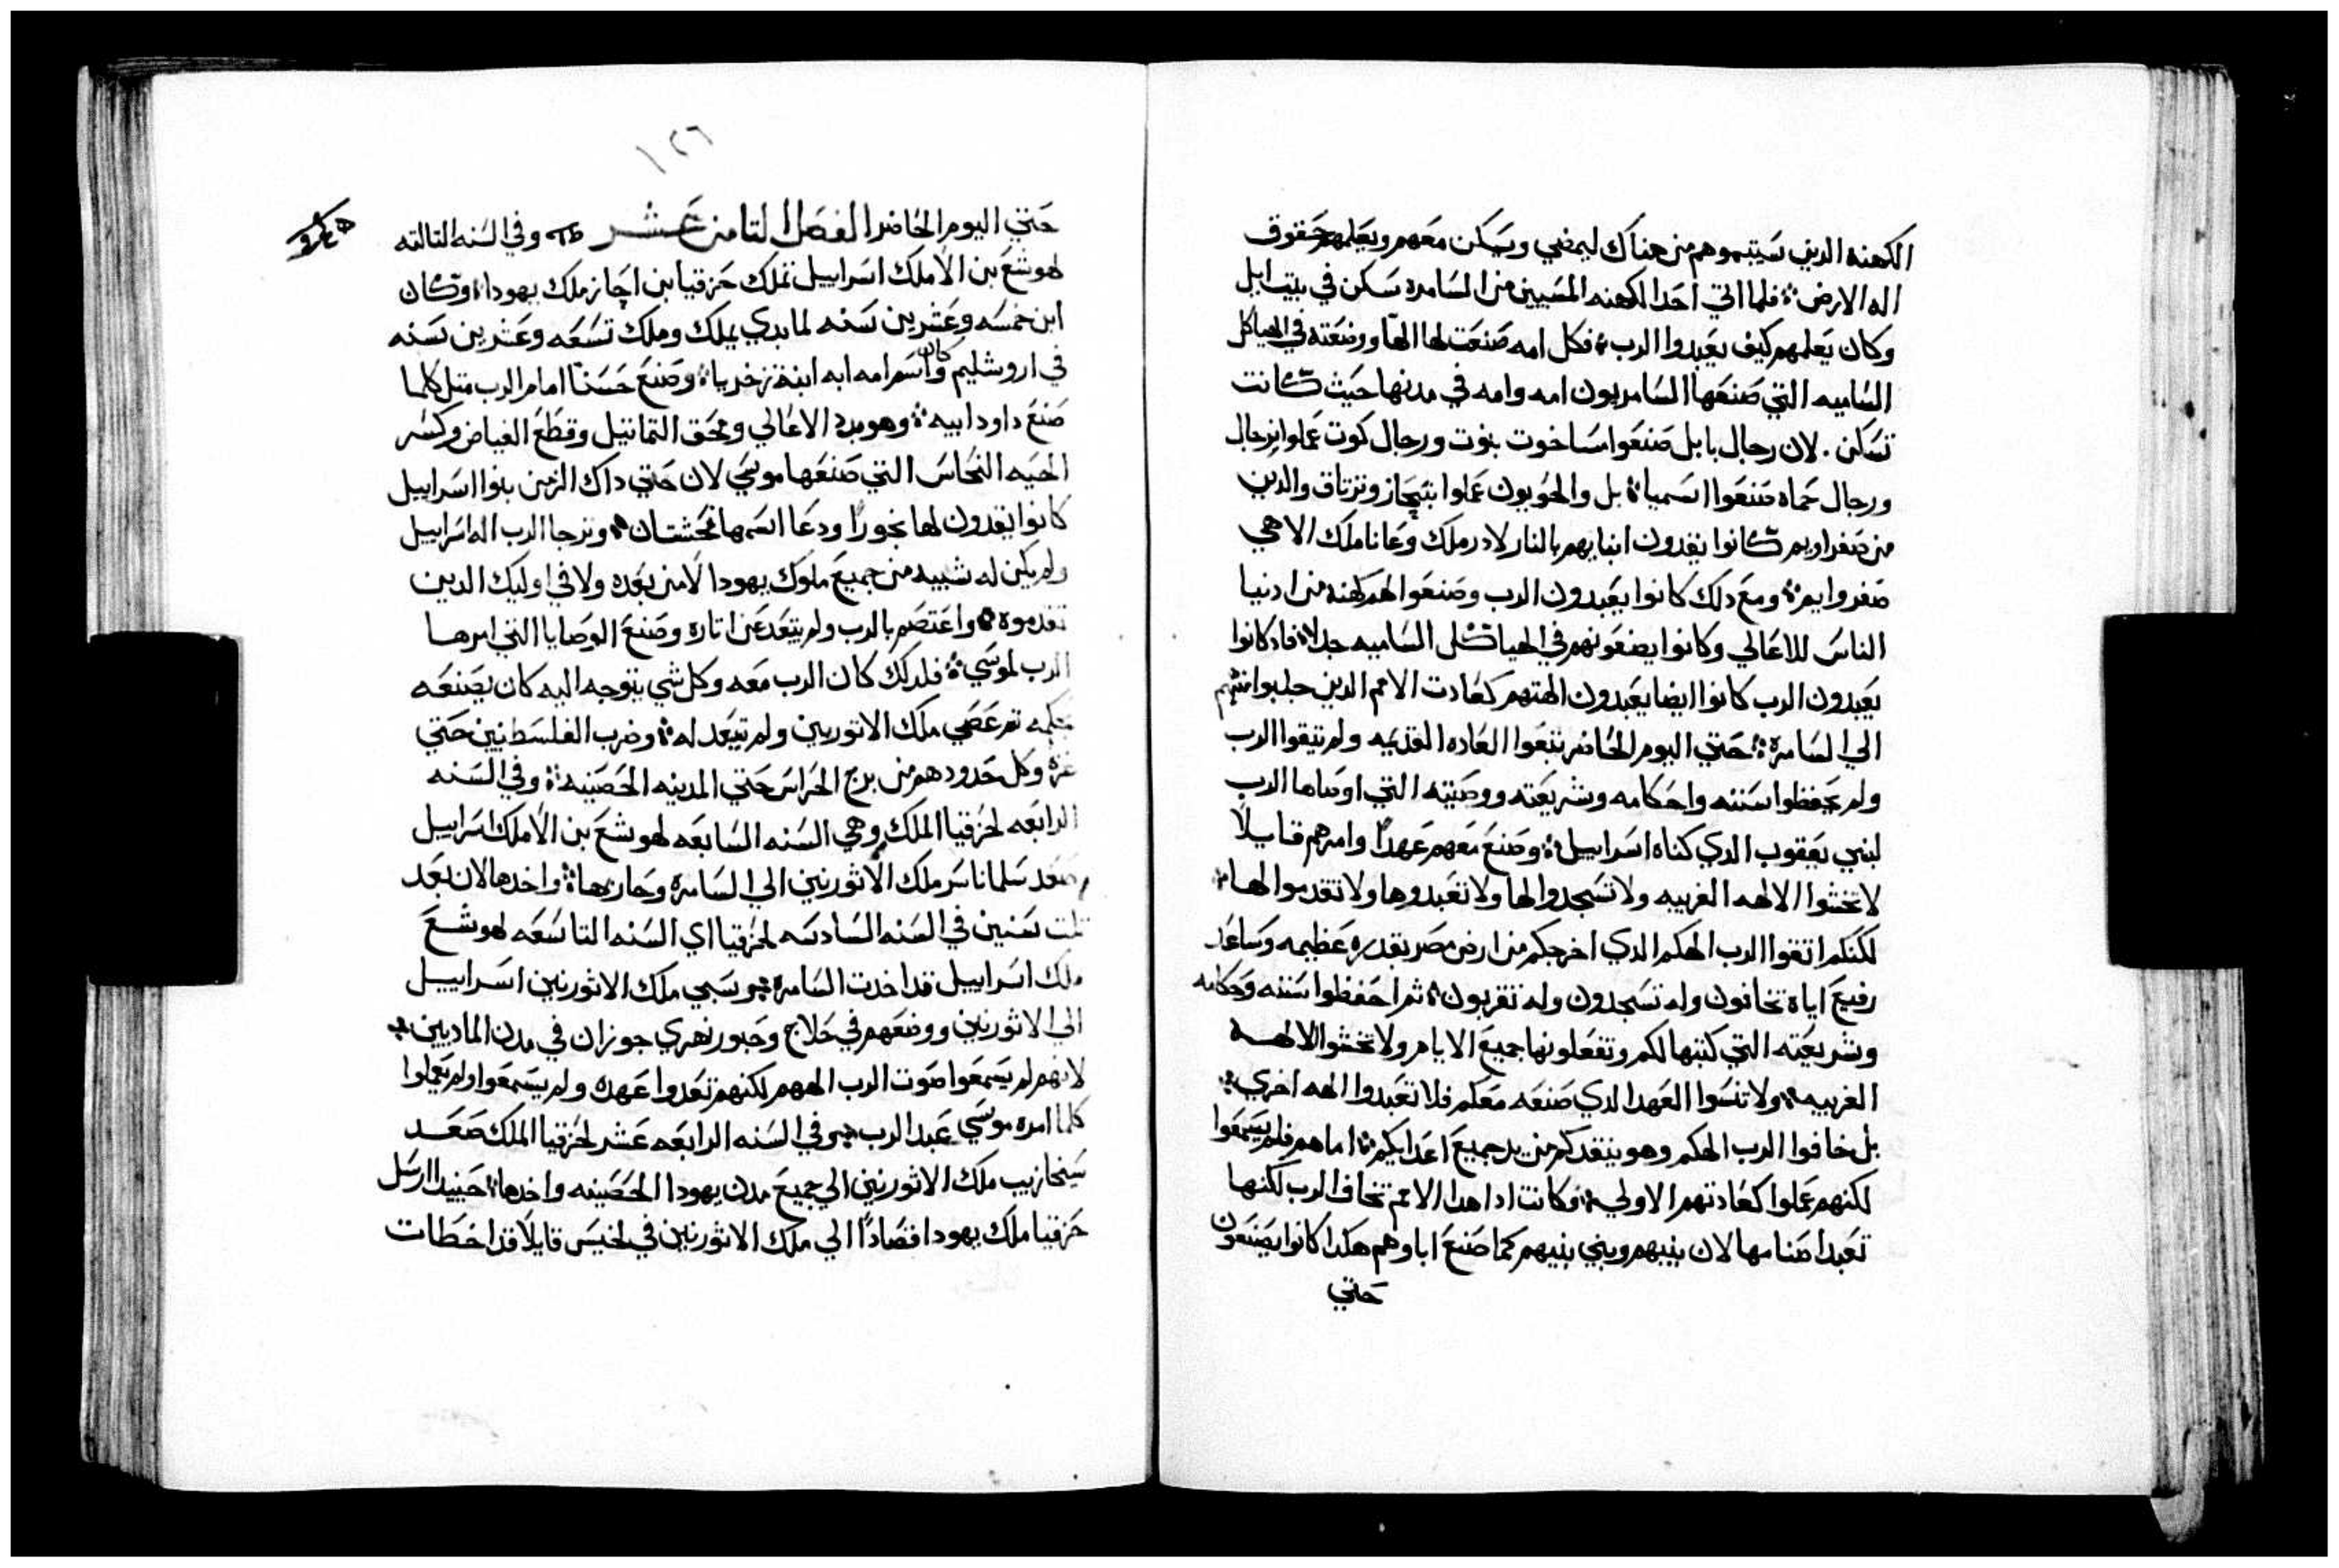 الكهنه الدين سيتبموهم من هناك ليمضي ويسكن معهم ويعلمهم حقوق
اله الارض فلما اتي احد الكهنه المسبيين من السامره سكن في بيت ابل
وكان يعلمهم كيف يعبدوا الرب فكل امه صنعت لها الها ووضعته في الهياكل
الساميه التي صنعها السامريون امه وامه في مدنها حيث كانت
تسكن . لان رجال بابل صنعوا ساخوت بنوت ورجال كوت عملوا نرجال
ورجال حماه صنعوا اسميا بل والحويون عملوا نبيحاز وترتاق والدين
من صفراويم كانوا يقدون ابنايهم بالنار لادرملك وعاناملك الاهي
صفروايم ومع دلك كانوا يعبدون الرب وصنعوا لهم كهنه من ادنيا
الناس للاعالي وكانوا يضعونهم في الهياكل الساميه جدا فادكانوا
يعبدون الرب كانوا ايضا يعبدون الهتهم كعادت الامم الدين جلبوا منهم
الي السامره حتي اليوم الحاضر يتبعوا العاده القديمه ولم يتقوا الرب
ولم يحفظوا سننه واحكامه وشريعته ووصيته التي اوصاها الرب
لبني يعقوب الدي كناه اسراييل وصنع معهم عهدا وامرهم قايلا
لا تخشوا الالهه الغريبه ولا تسجدوا لها ولا تعبدوها ولا تقدموا لها
لكنكم اتقوا الرب الهكم الدي اخرجكم من ارض مصر بقدره عظيمه وساعد
رفيع اياه تخافون وله تسجدون وله تقربون ثم احفظوا سننه وحكامه
وشريعته التي كتبها لكم وتفعلونها جميع الايام ولا تخشوا الالهه
الغريبه ولا تنسوا العهد الدي صنعه معكم فلا تعبدوا الهه اخري
بل خافوا الرب الهكم وهو ينقدكم من يد جميع اعدايكم اما هم فلم يسمعوا
لكنهم عملوا كعادتهم الاولي وكانت ادا هدا الامم تخاف الرب لكنها
تعبد اصنامها لان بنيهم وبني بنيهم كما صنع اباوهم هكدا كانوا يصنعون
حتي
١٢٦
حتي اليوم الحاضر الفصل التامن عشر وفي السنه التالته
لهوشع بن الا ملك اسراييل تملك حزقيا بن احاز ملك يهودا وكان
ابن خمسه وعشرين سنه لما بدي يملك وملك تسعه وعشرين سنه
في اروشليم وكان اسم امه ابه ابنة زخريا وصنع حسنا امام الرب متل كلما
صنع داود ابيه وهو بدد الاعالي ومحق التماتيل وقطع الغياض وكسر
الحيه النحاس التي صنعها موسي لان حتي داك الزمن بنوا اسراييل
كانوا يقدون لها بخورا ودعا اسمها نحشتان وترجا الرب اله اسراييل
ولم يكن له شبيه من جميع ملوك يهودا لا من بعده ولا في اوليك الدين
تقدموه واعتصم بالرب ولم يتعد عن اتاره وصنع الوصايا التي امرها
الرب لموسي فلدلك كان الرب معه وكل شي يتوجه اليه كان يصنعه
بحكمه تم عصي ملك الاتوريين ولم تيعد له وضرب الفلسطنيين حتي
غزه وكل حدودهم من برج الحراس حتي المدينه الحصينه وفي السنه
الرابعه لحزقيا الملك وهي السنه السابعه لهوشع بن الا ملك اسراييل
صعد سلماناسر ملك الاثورنين الي السامره وحاربها واخدها لان بعد
تلت سنين في السنه السادسه لحزقيا اي السنه التاسعه لهوشع
ملك اسراييل قد اخدت السامره وسبي ملك الاثورنين اسراييل
الي الاثورنين ووضعهم في حلاج وحبور نهري جوزان في مدن الماديين
لانهم لم يسمعوا صوت الرب الههم لكنهم تعدوا عهده ولم يسمعوا ولم يعملوا
كلما امره موسي عبد الرب وفي السنه الرابعه عشر لحزقيا الملك صعد
سنحازيب ملك الاثورنين الي جميع مدن يهودا الحصينه واخدها حينيدا ارسل
حزقيا ملك يهودا قصادا الي ملك الاثورنين في لخيس قايلا قد اخطات